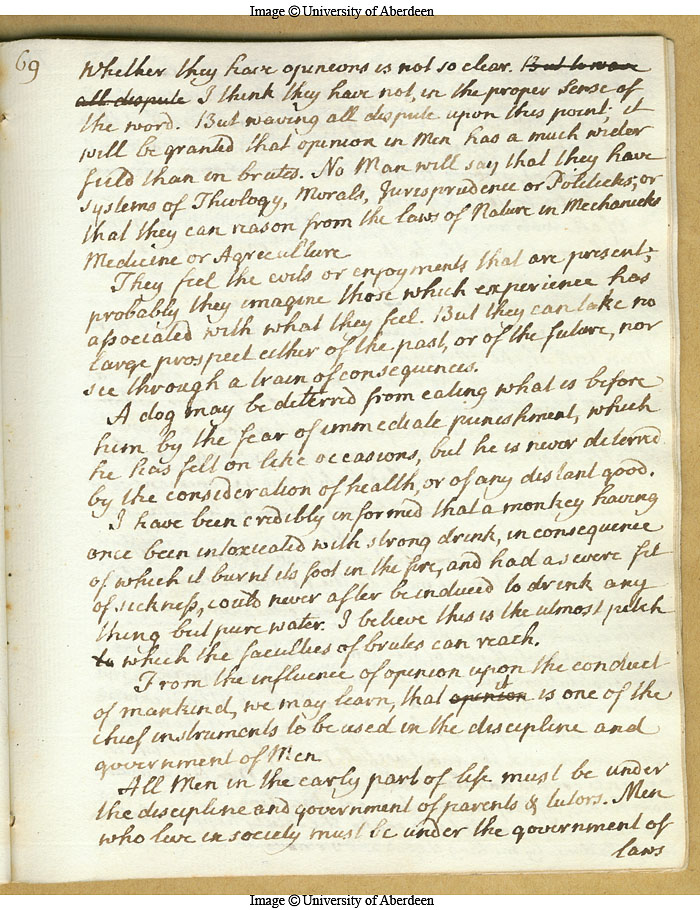 Image © University of Aberdeen
69
Whether they have opineons is not so clear. But to wave
all dispute I think they have not, in the proper sense of
the word. But waving all dispute upon this point; it
will be granted that opinion in Men has a much wider
field than in brutes. No Man will say that they have
systems of Theology, Morals, Jurisprudence or Politicks; or
that they can reason from the laws of Nature in Mechanicks
Medicine or Agreculture
They feel the evils or enjoyments that are present;
probably they imagine those which experience has
associated with what they feel. But they can take no
large prospect either of the past, or of the future, nor
see through a train of consequences.
A dog may be deterred from eating what is before
him by the fear of immediate punishment, which
he has felt on like occasions, but he is never deterred
by the consideration of health, or of any distant good.
I have been credibly informed that a monkey having
once been intoxicated with strong drink, in consequence
of which it burnt its foot in the fire, and had a severe fit
of sickness, could never after be induced to drink any
thing but pure water. I believe this is the utmost pitch
to which the faculties of brutes can reach.
From the influence of opinion upon the conduct
of mankind, we may learn, that opinion it is one of the
chief instruments to be used in the discipline and
government of Men
All Men in the early part of life must be under
the discipline and government of parents & tutors. Men
who live in society must be under the government of
laws
Image © University of Aberdeen